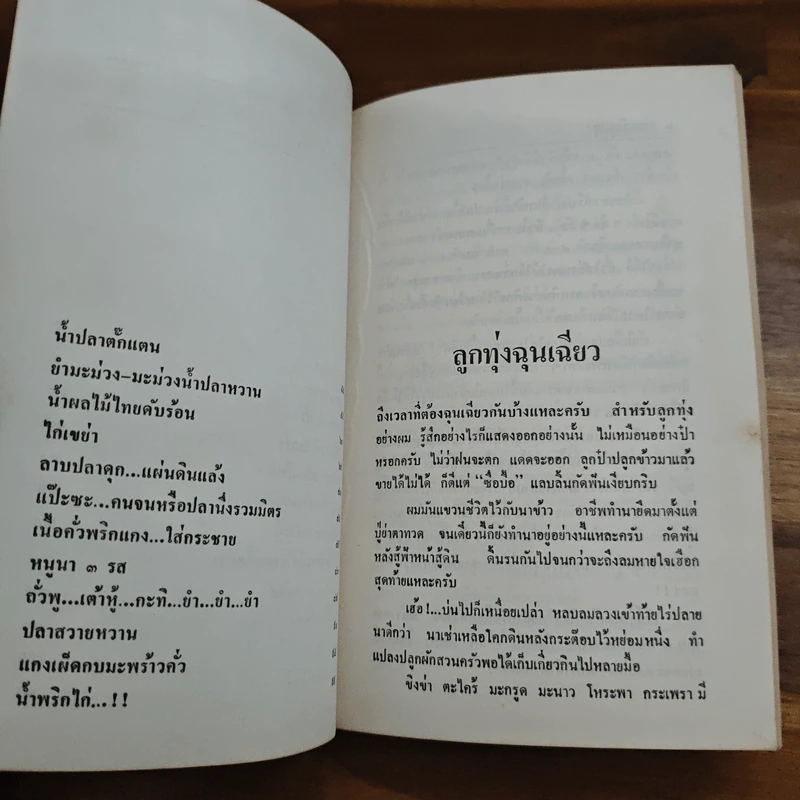 น้ำปลาตั๊กแตน
ยำมะม่วง-มะม่วงน้ำปลาหวาน
น้ำผลไม้ไทยดับร้อน
ไก่เขย่า
ลาบปลาดุก...แผ่นดินแล้ง
แป๊ะซะ...คนจนหรือปลานึ่งรวมมิตร
เนื้อคั่วพริกแกง...ใส่กระชาย
หนูนา ๓ รส
ถั่วพู...เต้าหู้...กะทิ...ยำ...ยำ...ยำ
ปลาสวายหวาน
แกงเผ็ดกบมะพร้าวคั่ว
น้ำพริกไก่...!!
ลูกทุ่งฉุนเฉียว
ถึงเวลาที่ต้องฉุนเฉียวกันบ้างแหละครับ สำหรับลูกทุ่ง
อย่างผม รู้สึกอย่างไรก็แสดงออกอย่างนั้น ไม่เหมือนอย่างป๋า
หรอกครับ ไม่ว่าฝนจะตก แดดจะออก ลูกป๋าปลูกข้าวมาแล้ว
ขายได้ไม่ได้ ก็ดีแต่ “ซื่อบื้อ” แลบลิ้นกัดฟันเงียบกริบ
ผมมันแขวนชีวิตไว้กับนาข้าว อาชีพทำนายึดมาตั้งแต่
ปู่ย่าตาทวด จนเดี๋ยวนี้ก็ยังทำนาอยู่อย่างนี้แหละครับ กัดฟัน
หลังสู้ฟ้าหน้าสู้ดิน ดิ้นรนกันไปจนกว่าจะถึงลมหายใจเฮือก
สุดท้ายแหละครับ
เฮ้อ !...บ่นไปก็เหนื่อยเปล่า หลบลมลวงเข้าท้ายไร่ปลาย
นาดีกว่า นาเช่าเหลือโคกดินหลังกระต๊อบไว้หย่อมหนึ่ง ทำ
แปลงปลูกผักสวนครัวพอได้เก็บเกี่ยวกินไปหลายมื้อ
ขิงข่า ตะไคร้ มะกรูด มะนาว โหระพา กระเพรา มี